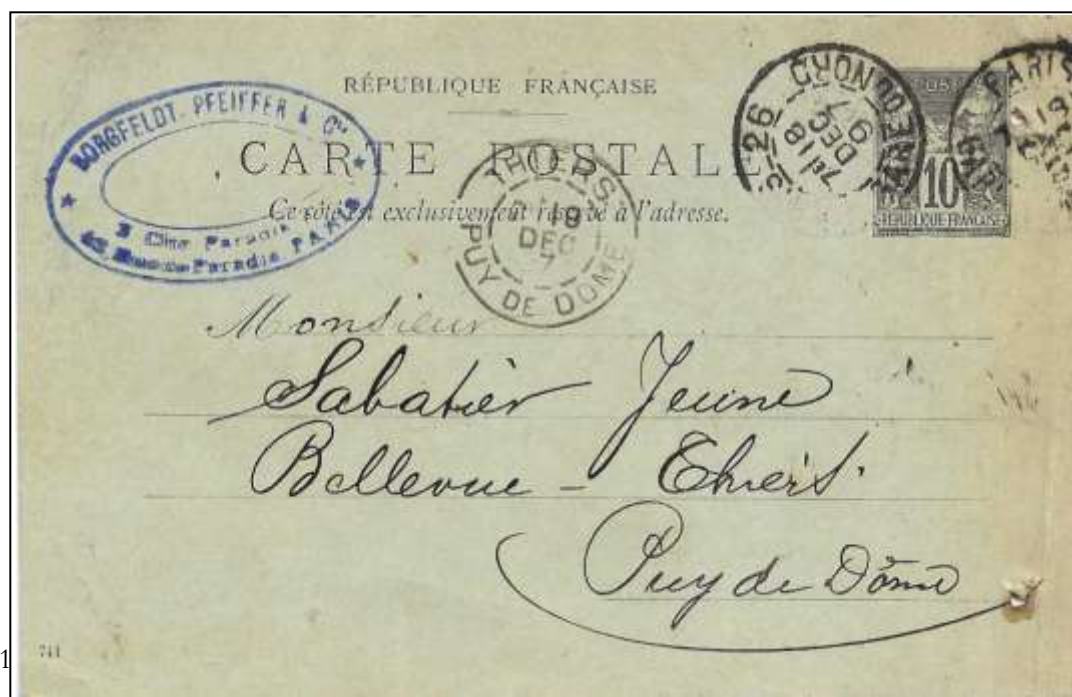 RÉPUBLIQUE FRANÇAISE
CARTE POSTALE
Ce côté est exclusivement réservé à l'adresse.
BORGFELDT. PFEIFFER & Cie
43 Paradis PARIS
THIERS
18
DEC
PUY DE DOME
PARIS-26 GARE DU NORD
7E 18
DEC
97
PARIS
10
REPUBLIQUE FRANÇAISE
Monsieur
Sabatier Jeune
Bellevue - Thiers
Puy de Dôme
741
1